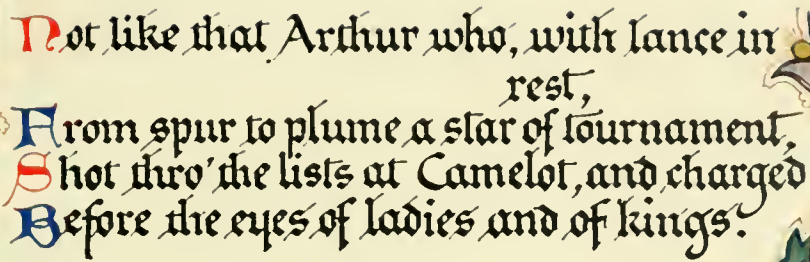 Not like that Arthur who, with lance in
rest,
From spur to plume a star of tournament,
Shot thro' the lists at Camelot, and charged
Before the eyes of ladies and of kings.